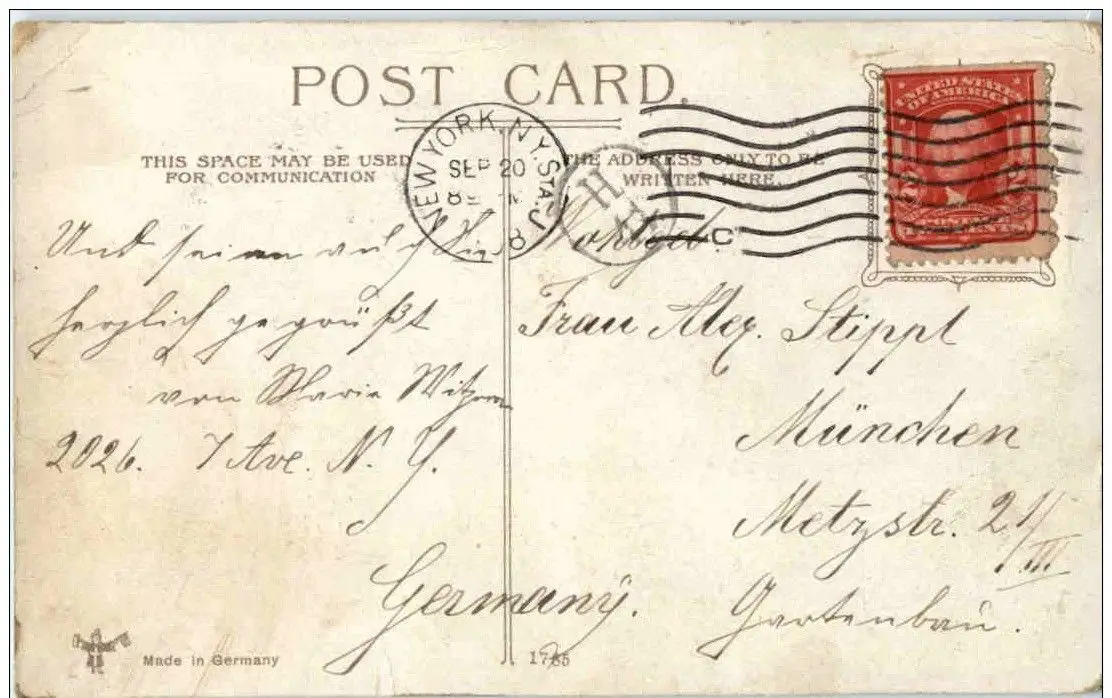 POST CARD.
THIS SPACE MAY BE USED
FOR COMMUNICATION
THE ADDRESS ONLY TO BE
WRITTEN HERE.
NEW YORK, N.Y. STA. J
SEP 20
8
UNITED STATES
OF AMERICA
Und seien auch Sie
herzlich gegrüßt
von Marie
2026. 7 Ave. N. Y.
Wohlgeb.
Frau Alex. Stippl
München
Metzstr. 21/
III
Gartenbau.
Germany.
Made in Germany
1765